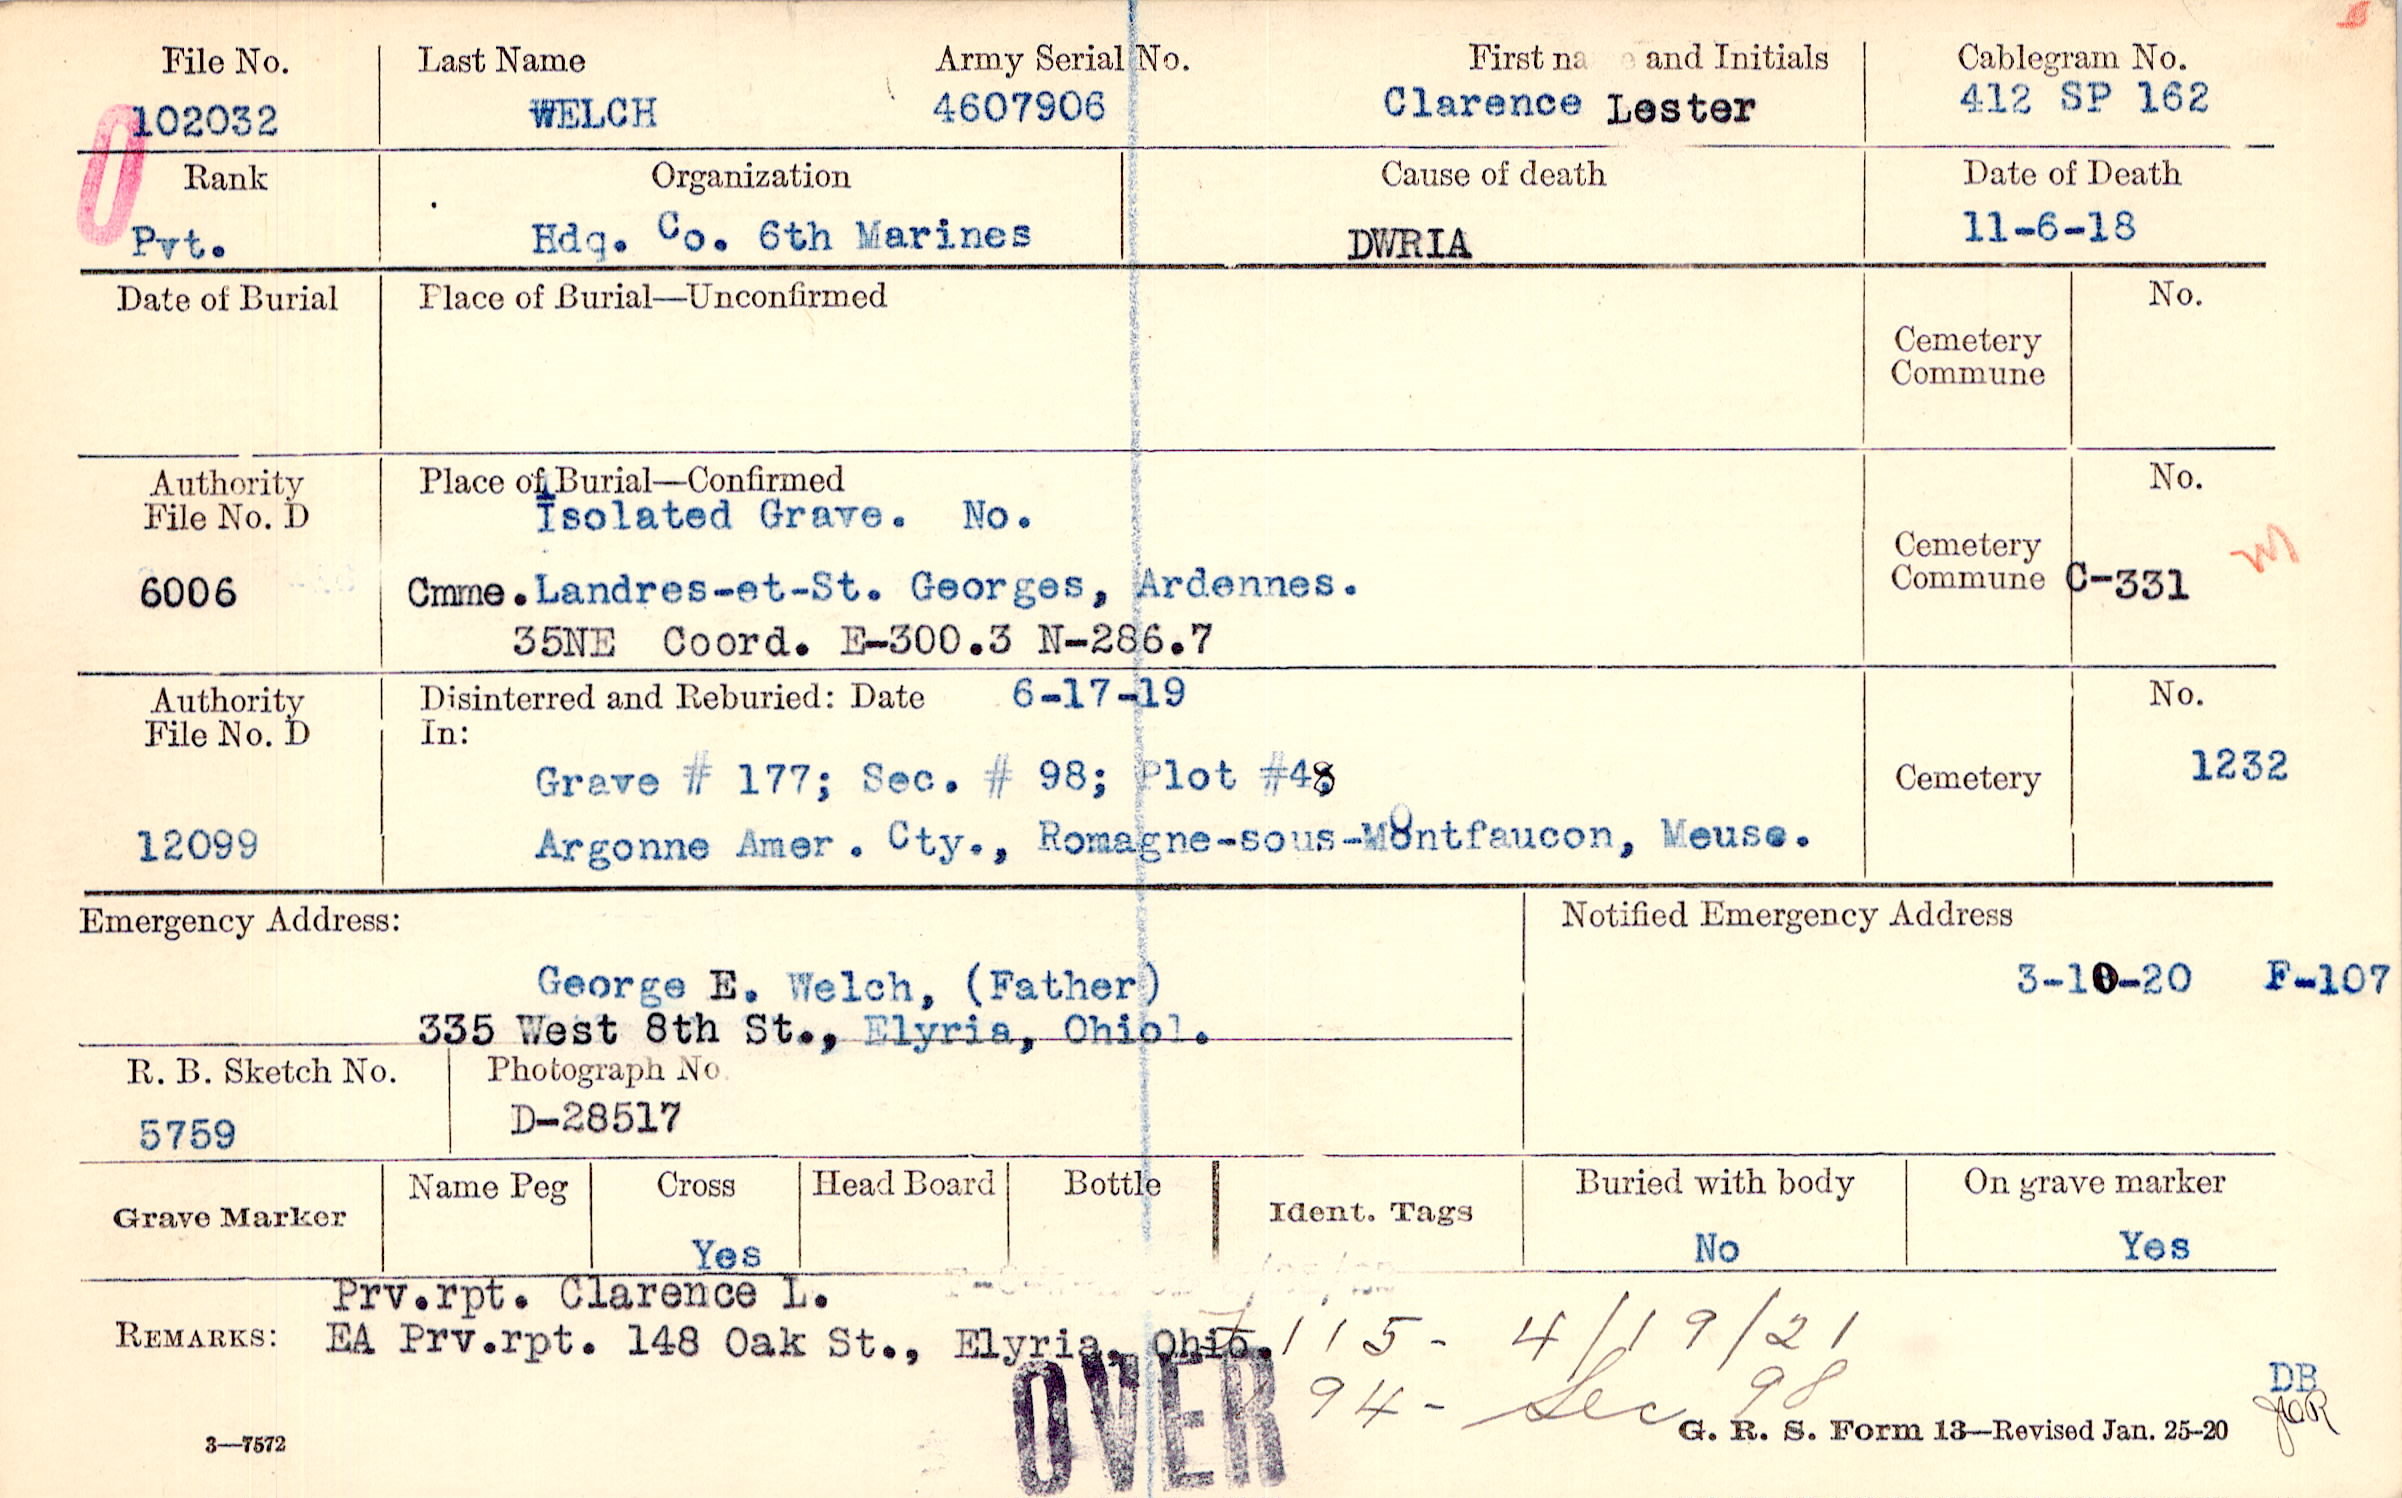 File No. Last Name Army Serial No. First na e and Initials Cablegram No.
102032 WELCH 4607906 Clarence Lester 412 SP 162
Rank Organization Cause of death Date of Death
Pvt. Hdq. Co. 6th Marines DWRIA 11-6-18
Date of Burial Place of Burial—Unconfirmed No.
Cemetery
Commune
Authority Place of Burial—Confirmed No.
File No. D Isolated Grave. No.
Cemetery
6006 Cmme. Landres-et-St. Georges, Ardennes. Commune C-331
35NE Coord. E-300.3 N-286.7
Authority Disinterred and Reburied: Date 6-17-19 No.
File No. D In:
Grave # 177; Sec. # 98; Plot #4; Cemetery 1232
12099 Argonne Amer. Cty., Romagne-sous-Montfaucon, Meuse.
Emergency Address: Notified Emergency Address
George E. Welch, (Father) 3-10-20 F-107
335 West 8th St., Elyria, Ohio.
R. B. Sketch No. Photograph No.
5759 D-28517
Grave Marker Name Peg Cross Head Board Bottle Ident. Tags Buried with body On grave marker
Yes No Yes
Prv.rpt. Clarence L.
REMARKS: EA Prv.rpt. 148 Oak St., Elyria, Ohio. 115- 4/19/21
OVER 94- Sec 98 DB
3—7572 G. R. S. Form 13—Revised Jan. 25-20